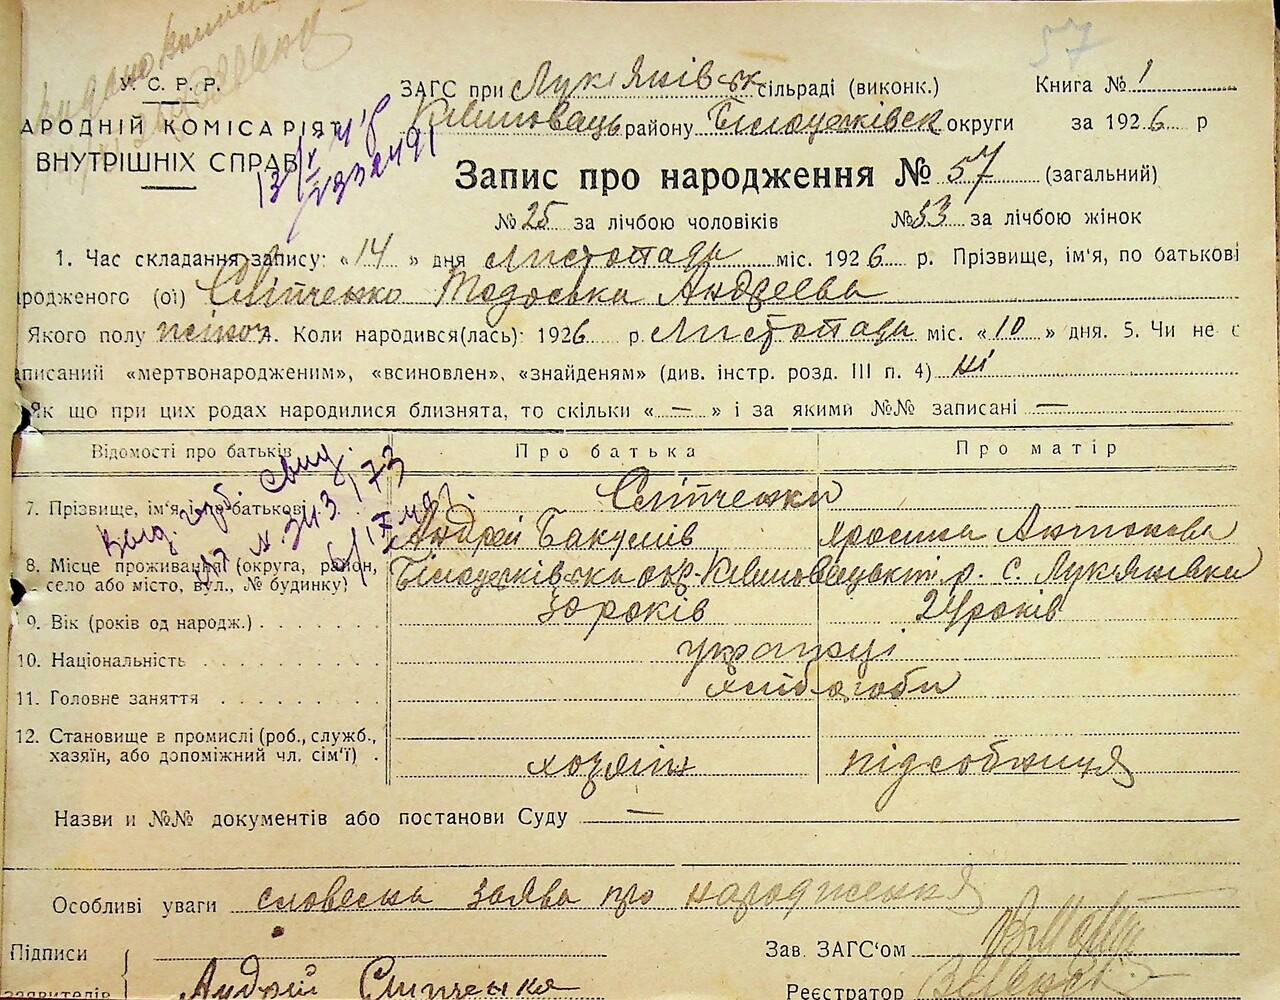 57
У. С. Р. Р.
ЗАГС при Лукяшівськ сільраді (виконк.) Книга № 1
АРОДНІЙ КОМІСАРІЯТ
району Білоцерківськ округи за 1926 р
ВНУТРІШНІХ СПРАВ
Запис про народження № 57 (загальний)
№ 25 за лічбою чоловіків № 33 за лічбою жінок
1. Час складання запису: « 14 » дня листопада міс. 1926 р. Прізвище, ім'я, по батькові
ародженого (ої) Сліпченко Тодоська Андреева
Якого полу жіноч. Коли народився(лась): 1926 р. Листопада міс. « 10 » дня. 5. Чи не є
аписаний «мертвонародженим», «всиновлен», «знайденям» (див. інстр. розд. III п. 4) ні
Як що при цих родах народилися близнята, то скільки « — » і за якими №№ записані —
Відомості про батьків Про батька Про матір
7. Прізвище, ім'я і по батькові Сліпченки
Андрей Ярослa Антонова
8. Місце проживання (округа, район, село або місто, вул., № будинку) Білоцерківська окр. р. с. Лукяшівка
9. Вік (років од народж.) 30 років 24 років
10. Національність українці
11. Головне заняття хлібороби
12. Становище в промислі (роб., служб.,
хазяїн, або допоміжний чл. сім'ї) хозяїн підсобниця
Назви и №№ документів або постанови Суду —
Особливі уваги словесна заява про народження
Підписи Зав. ЗАГС'ом
заявителів Андрій Сліпченко Реєстратор